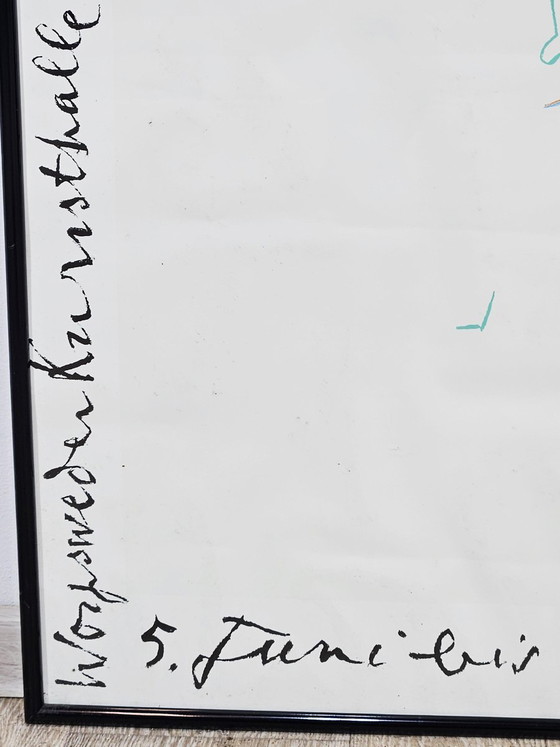 Worpsweder Kunsthalle
5. Juni bis